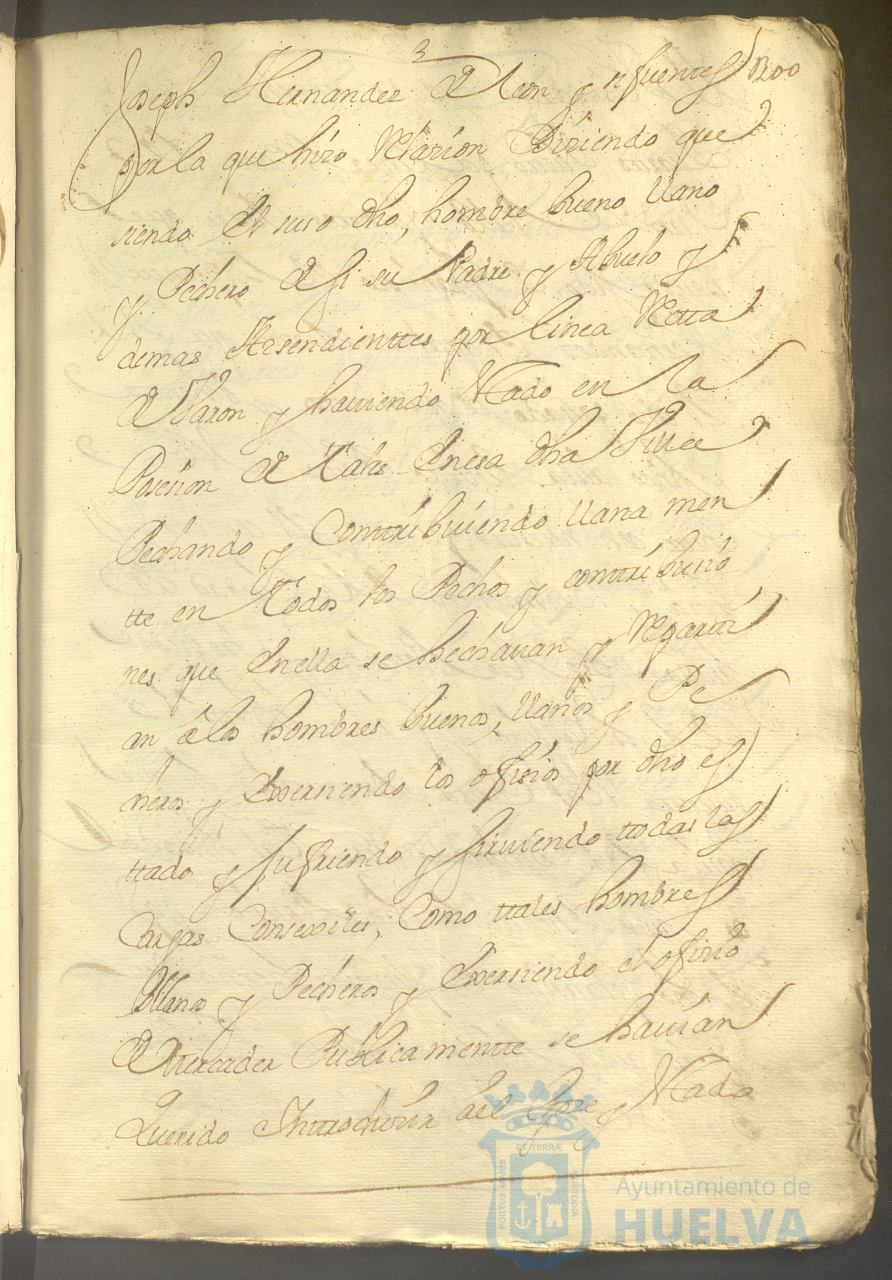 3
Joseph Hernandez de leon y nfuentes 1200
por la que hizo Relazion Diziendo que
siendo el suso dho, hombre bueno llano
y Pechero de si su Padre y Abuelo y
demas Assendienttes por linea Rectta
de Baron y hauiendo estado en la
Posesion de tales Enesa dha Villa
Pechando y Conttribuiendo llana men
tte en Todos los Pechos y conttribusio
nes que Enella se hechauan y Repartti
an â los hombres buenos, llanos y Pe
cheros y Exersiendo los ofisios por dho es
ttado y sufriendo y siruiendo ttodas las
Cargas Consexiles, Como ttales hombres
llanos y Pecheros y Exersiendo el ofisio
de Mercader Publicamentte se hauian
Querido Inttroduzir del
ET TERRAE
PORTUS MARIS
CUSTODIA
Ayuntamiento de
HUELVA